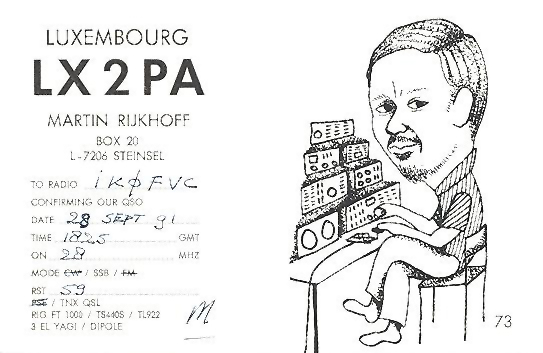 LUXEMBOURG
LX2PA
MARTIN RIJKHOFF
BOX 20
L-7206 STEINSEL
TO RADIO IKØFVC
CONFIRMING OUR QSO
DATE 28 SEPT 91
TIME 1825 GMT
ON 28 MHZ
MODE CW / SSB / FM
RST 59
PSE / TNX QSL
RIG FT 1000 / TS440S / TL922
3 EL YAGI / DIPOLE
M
73